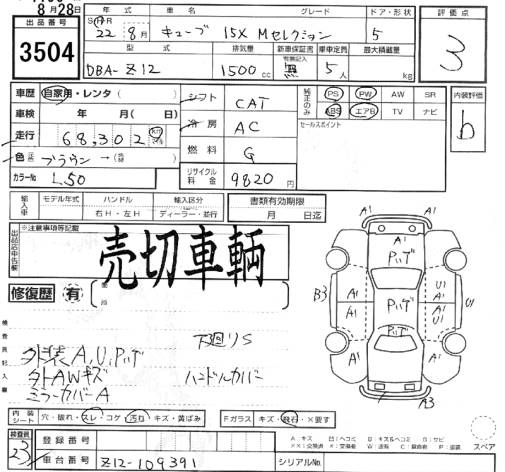 8月28日
出品番号
3504
年式 車名 グレード ドア・形状 評価点
22 8月 キューブ 15X Mセレクション 5
3
型式 排気量 新車保証書 有無記入 乗車定員 最大積載量
DBA-Z12 1500cc 無 5人 kg
車歴 自家用・レンタ( ) シフト CAT 純正のみ PS PW AW SR 内装評価
b
車検 年 月( 日) 冷房 AC ABS エアB TV ナビ
走行 68,302 km 燃料 G セールスポイント
色 ブラウン → ( )
カラーNo L50 リサイクル料金 9820円
輸入車 モデル年式 ハンドル 輸入区分 書類有効期限
右H・左H ディーラー・並行 月 日迄
出品店申告欄 ※注意事項等記載
売切車輌
修復歴 有 箇所
検査員記入欄
外装A,U,Pハゲ 下廻りS
外AWキズ ハンドルカバー
ミラーカバーA
A1 A1 A1
A1 Pハゲ A1
A1 U1
B3 Pハゲ U1
A1 A1
Pハゲ
A1 A3
内装シート 穴・破れ・スレ・コゲ 汚れ・キズ・黄ばみ Fガラス キズ・飛石・×要す
スペア
検査員
23
登録番号
車台番号 Z12-109391 シリアルNo.